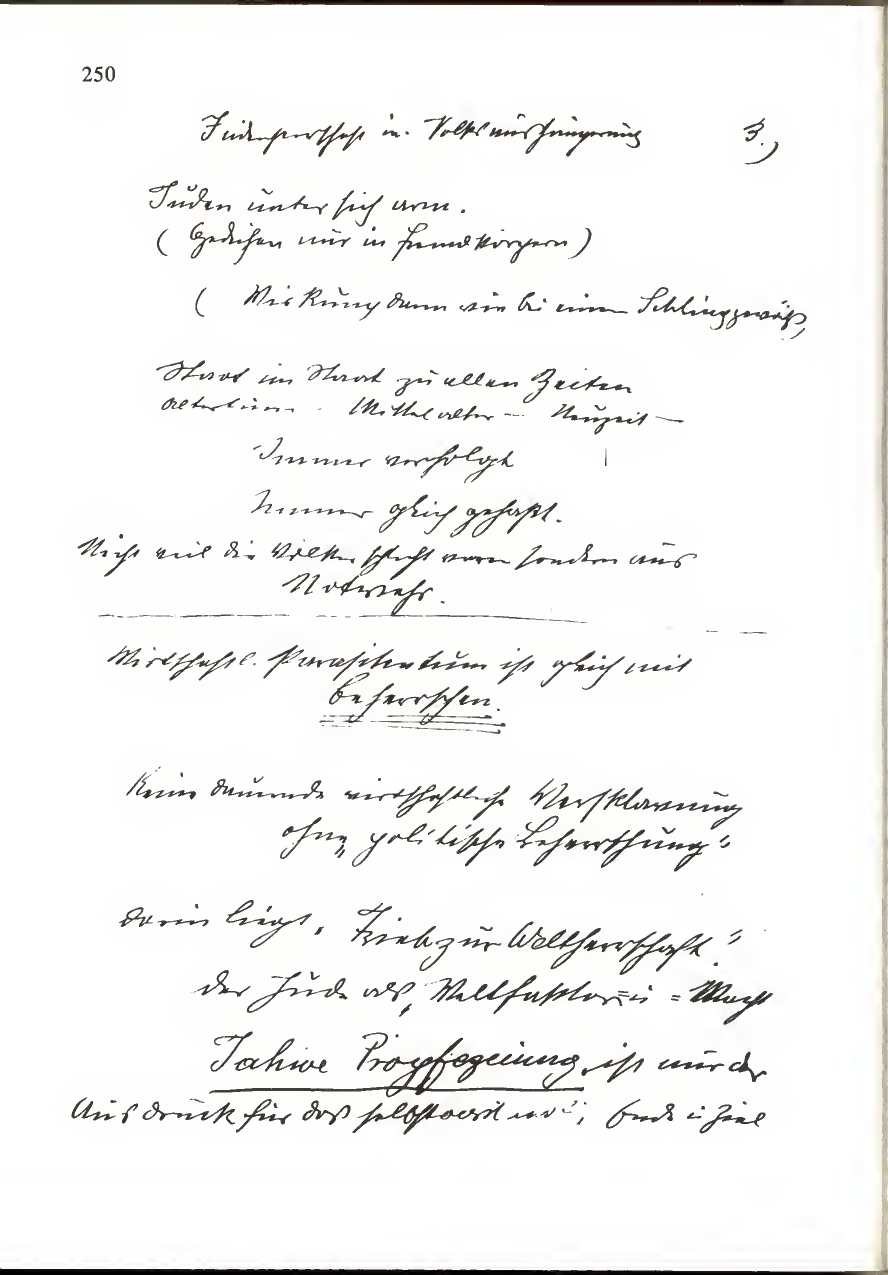 250
Judenherrschaft u. Volksaushungerung 3.)
Juden unter sich arm.
(Gedeihen nur in Fremdkörpern)
( Wirkung dann wie bei einem Schlinggewäß,
Staat im Staat zu allen Zeiten
Altertum - Mittelalter - Neuzeit —
Immer verfolgt
Immer gleich gehaßt.
Nicht weil die Völker schlecht waren sondern aus
Notwehr.
Wirtschaftl. Parasitentum ist gleich mit
Beherrschen.
Keine dauernde wirtschaftliche Versklavung
ohne „politische Beherrschung“
darin liegt „Trieb zur Weltherrschaft.“
der Jude als „Weltfaktor = u = Macht
Jahwe Prophezeiung ist nur der
Ausdruck für das selbst End u Ziel